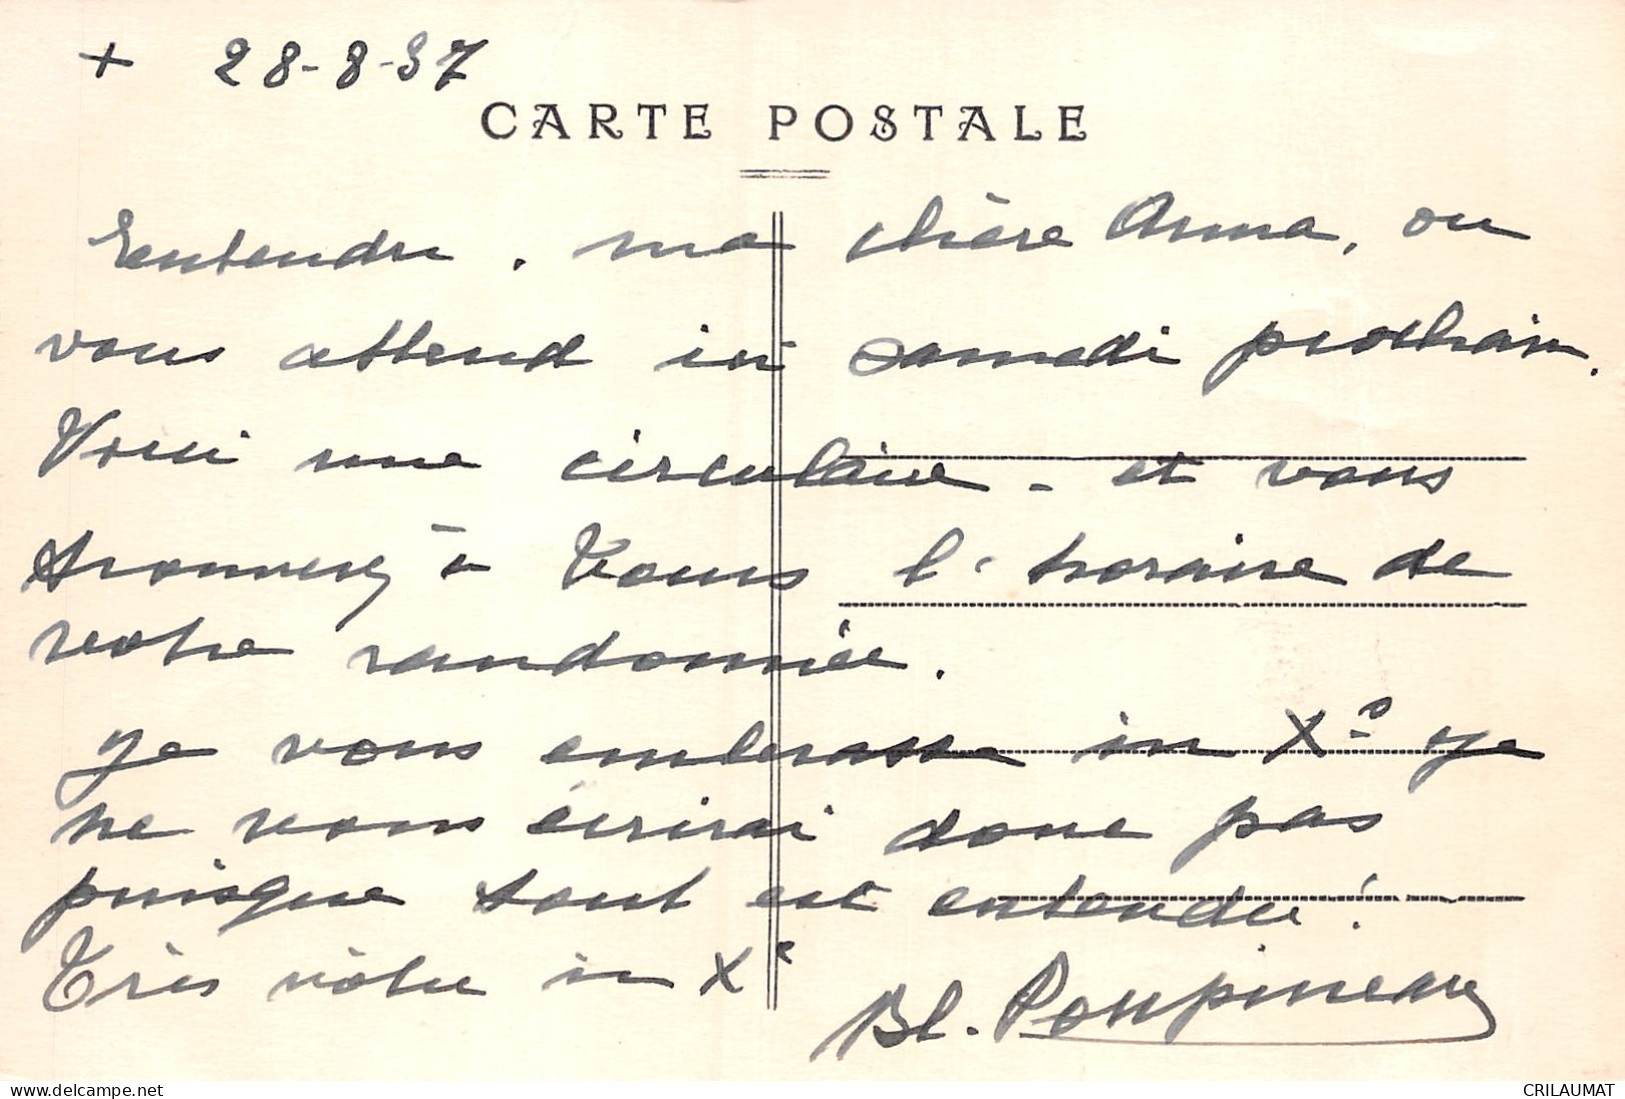 + 28-8-37
CARTE POSTALE
Entendu, ma chère Anna, on
vous attend ici samedi prochain.
Voici une circulaire - et vous
trouverez à Tours l'horaire de
votre randonnée.
Je vous embrasse in Xº Je
ne vous écrirai donc pas
puisque tout est entendu !
Très vôtre in Xº
Bl. Poupineau
delcampe.net
CRILAUMAT